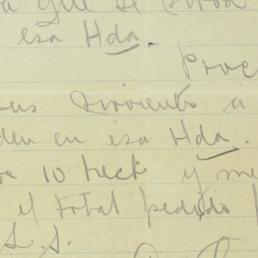 que se sirva
esa Hda.
sus sirvientes a
den en esa Hda.
10 hect y me
el total pedido
S. S.